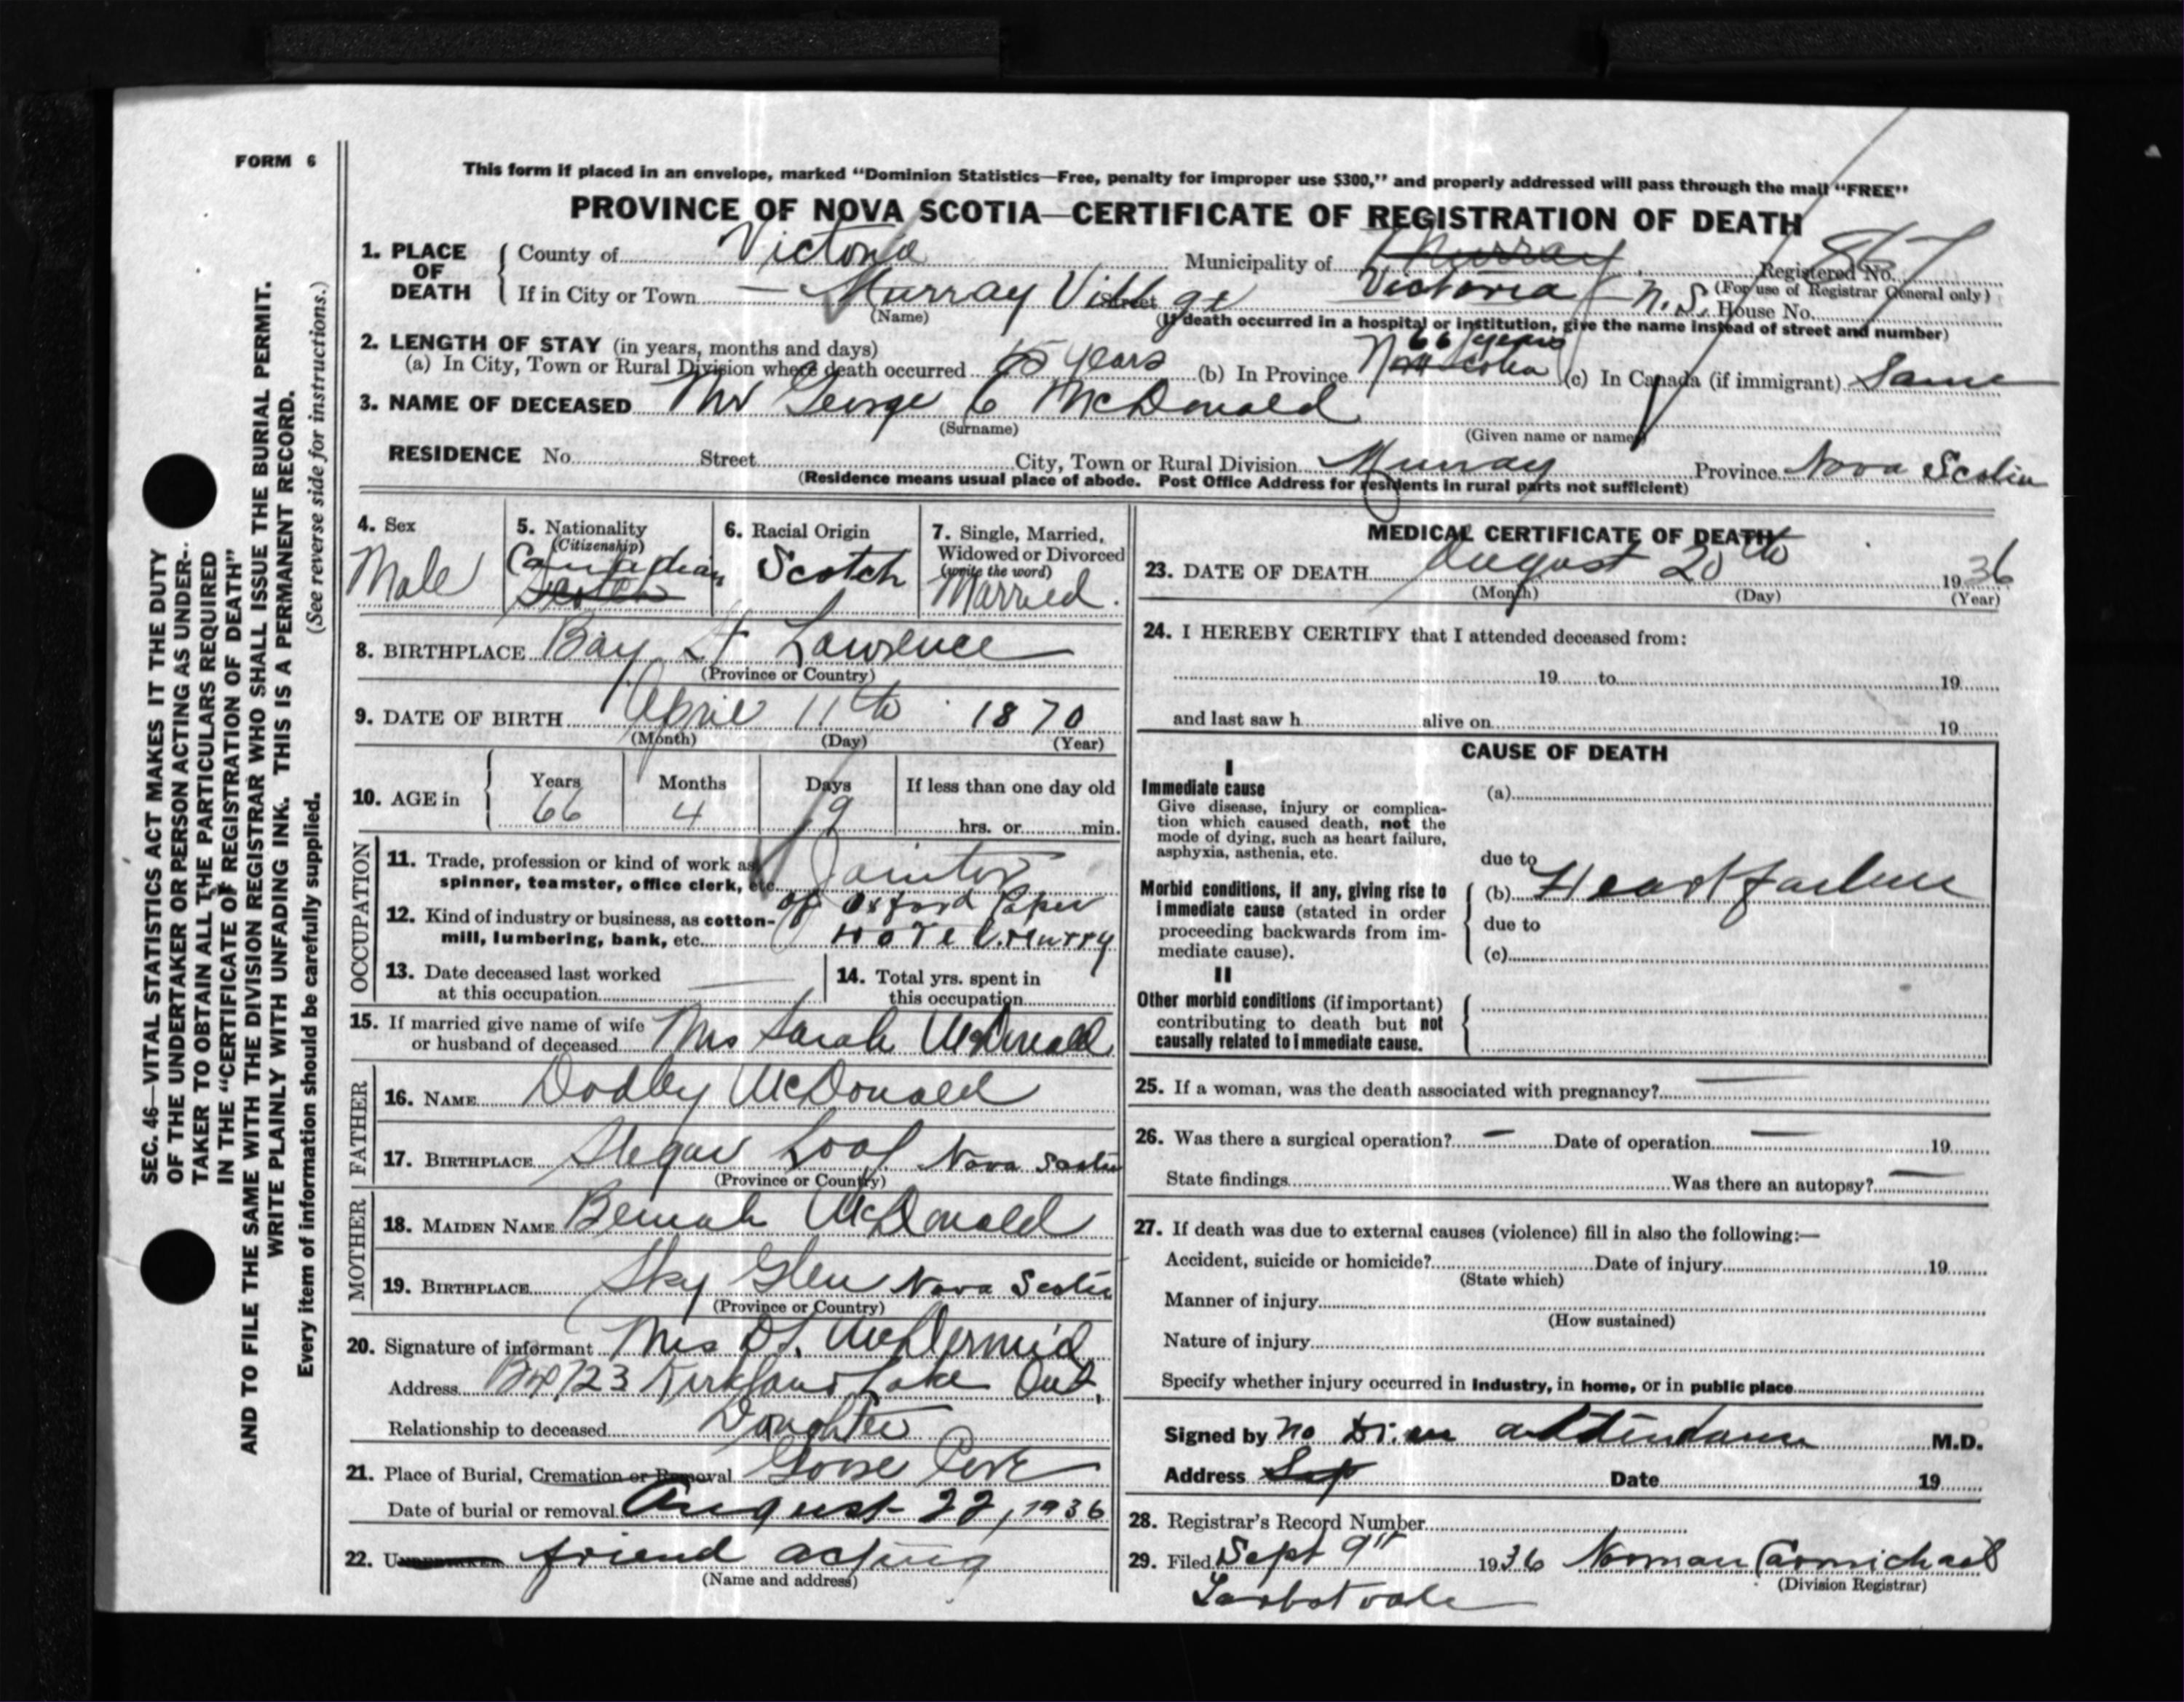 FORM 6
This form if placed in an envelope, marked "Dominion Statistics—Free, penalty for improper use $300," and properly addressed will pass through the mail "FREE"
PROVINCE OF NOVA SCOTIA—CERTIFICATE OF REGISTRATION OF DEATH
1. PLACE OF DEATH County of Victoria Municipality of Murray Victoria N.S. Registered No. 867
(For use of Registrar General only)
If in City or Town — Murray Village Street House No.
(Name) (If death occurred in a hospital or institution, give the name instead of street and number)
2. LENGTH OF STAY (in years, months and days)
(a) In City, Town or Rural Division where death occurred years (b) In Province 66 years Nova Scotia (c) In Canada (if immigrant) Same
3. NAME OF DECEASED Mr George C McDonald
(Surname) (Given name or names)
RESIDENCE No. Street City, Town or Rural Division Murray Province Nova Scotia
(Residence means usual place of abode. Post Office Address for residents in rural parts not sufficient)
4. Sex Male
5. Nationality (Citizenship) Canadian Scotch
6. Racial Origin Scotch
7. Single, Married, Widowed or Divorced (write the word) Married.
8. BIRTHPLACE Bay St Lawrence
(Province or Country)
9. DATE OF BIRTH April 11th 1870
(Month) (Day) (Year)
10. AGE in Years 66 Months 4 Days 9 If less than one day old hrs. or min.
OCCUPATION
11. Trade, profession or kind of work as spinner, teamster, office clerk, etc. Janitor
12. Kind of industry or business, as cotton-mill, lumbering, bank, etc. of Oxford Paper Hotel Murry
13. Date deceased last worked at this occupation —
14. Total yrs. spent in this occupation
15. If married give name of wife or husband of deceased Mrs Sarah McDonald
FATHER
16. NAME McDonald
17. BIRTHPLACE Nova Scotia
(Province or Country)
MOTHER
18. MAIDEN NAME McDonald
19. BIRTHPLACE Sky Glen Nova Scotia
(Province or Country)
20. Signature of informant Mrs D.L. McDermid
Address Box 723 Kirkland Lake Ont.
Relationship to deceased Daughter
21. Place of Burial, Cremation or Removal Goose Cove
Date of burial or removal August 22, 1936
22. UNDERTAKER friend acting
(Name and address)
MEDICAL CERTIFICATE OF DEATH
23. DATE OF DEATH August 20th 1936
(Month) (Day) (Year)
24. I HEREBY CERTIFY that I attended deceased from:
19 to 19
and last saw h alive on 19
CAUSE OF DEATH
I
Immediate cause
Give disease, injury or complication which caused death, not the mode of dying, such as heart failure, asphyxia, asthenia, etc.
(a)
due to
Morbid conditions, if any, giving rise to immediate cause (stated in order proceeding backwards from immediate cause).
(b) Heart failure
due to
(c)
II
Other morbid conditions (if important) contributing to death but not causally related to immediate cause.
25. If a woman, was the death associated with pregnancy? —
26. Was there a surgical operation? — Date of operation — 19
State findings Was there an autopsy? —
27. If death was due to external causes (violence) fill in also the following:—
Accident, suicide or homicide? Date of injury 19
(State which)
Manner of injury
(How sustained)
Nature of injury
Specify whether injury occurred in industry, in home, or in public place
Signed by no Dr. in attendance M.D.
Address Date 19
28. Registrar's Record Number
29. Filed Sept 9th 1936 Norman Carmichael
(Division Registrar)
Tarbotvale
SEC. 46—VITAL STATISTICS ACT MAKES IT THE DUTY
OF THE UNDERTAKER OR PERSON ACTING AS UNDER-
TAKER TO OBTAIN ALL THE PARTICULARS REQUIRED
IN THE "CERTIFICATE OF REGISTRATION OF DEATH"
AND TO FILE THE SAME WITH THE DIVISION REGISTRAR WHO SHALL ISSUE THE BURIAL PERMIT.
WRITE PLAINLY WITH UNFADING INK. THIS IS A PERMANENT RECORD.
Every item of information should be carefully supplied. (See reverse side for instructions.)